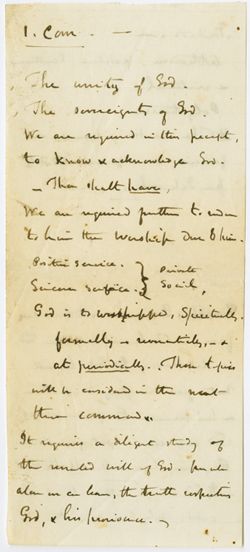 1. Com. —
The unity of God.
The sovereignty of God.
We are required in this precept,
to know & acknowledge God.
— Thou shalt have,
We are required further to render
to him the worship due to him.
Positive service. } Private
Sincere service. } Social,
God is to worshipped, Spiritually.
formally –
at periodically. These topics
will be considered in the next
three commds.
It requires a diligent study of
the revealed will of God. for
alone we can learn, the truth respecting
God, & his